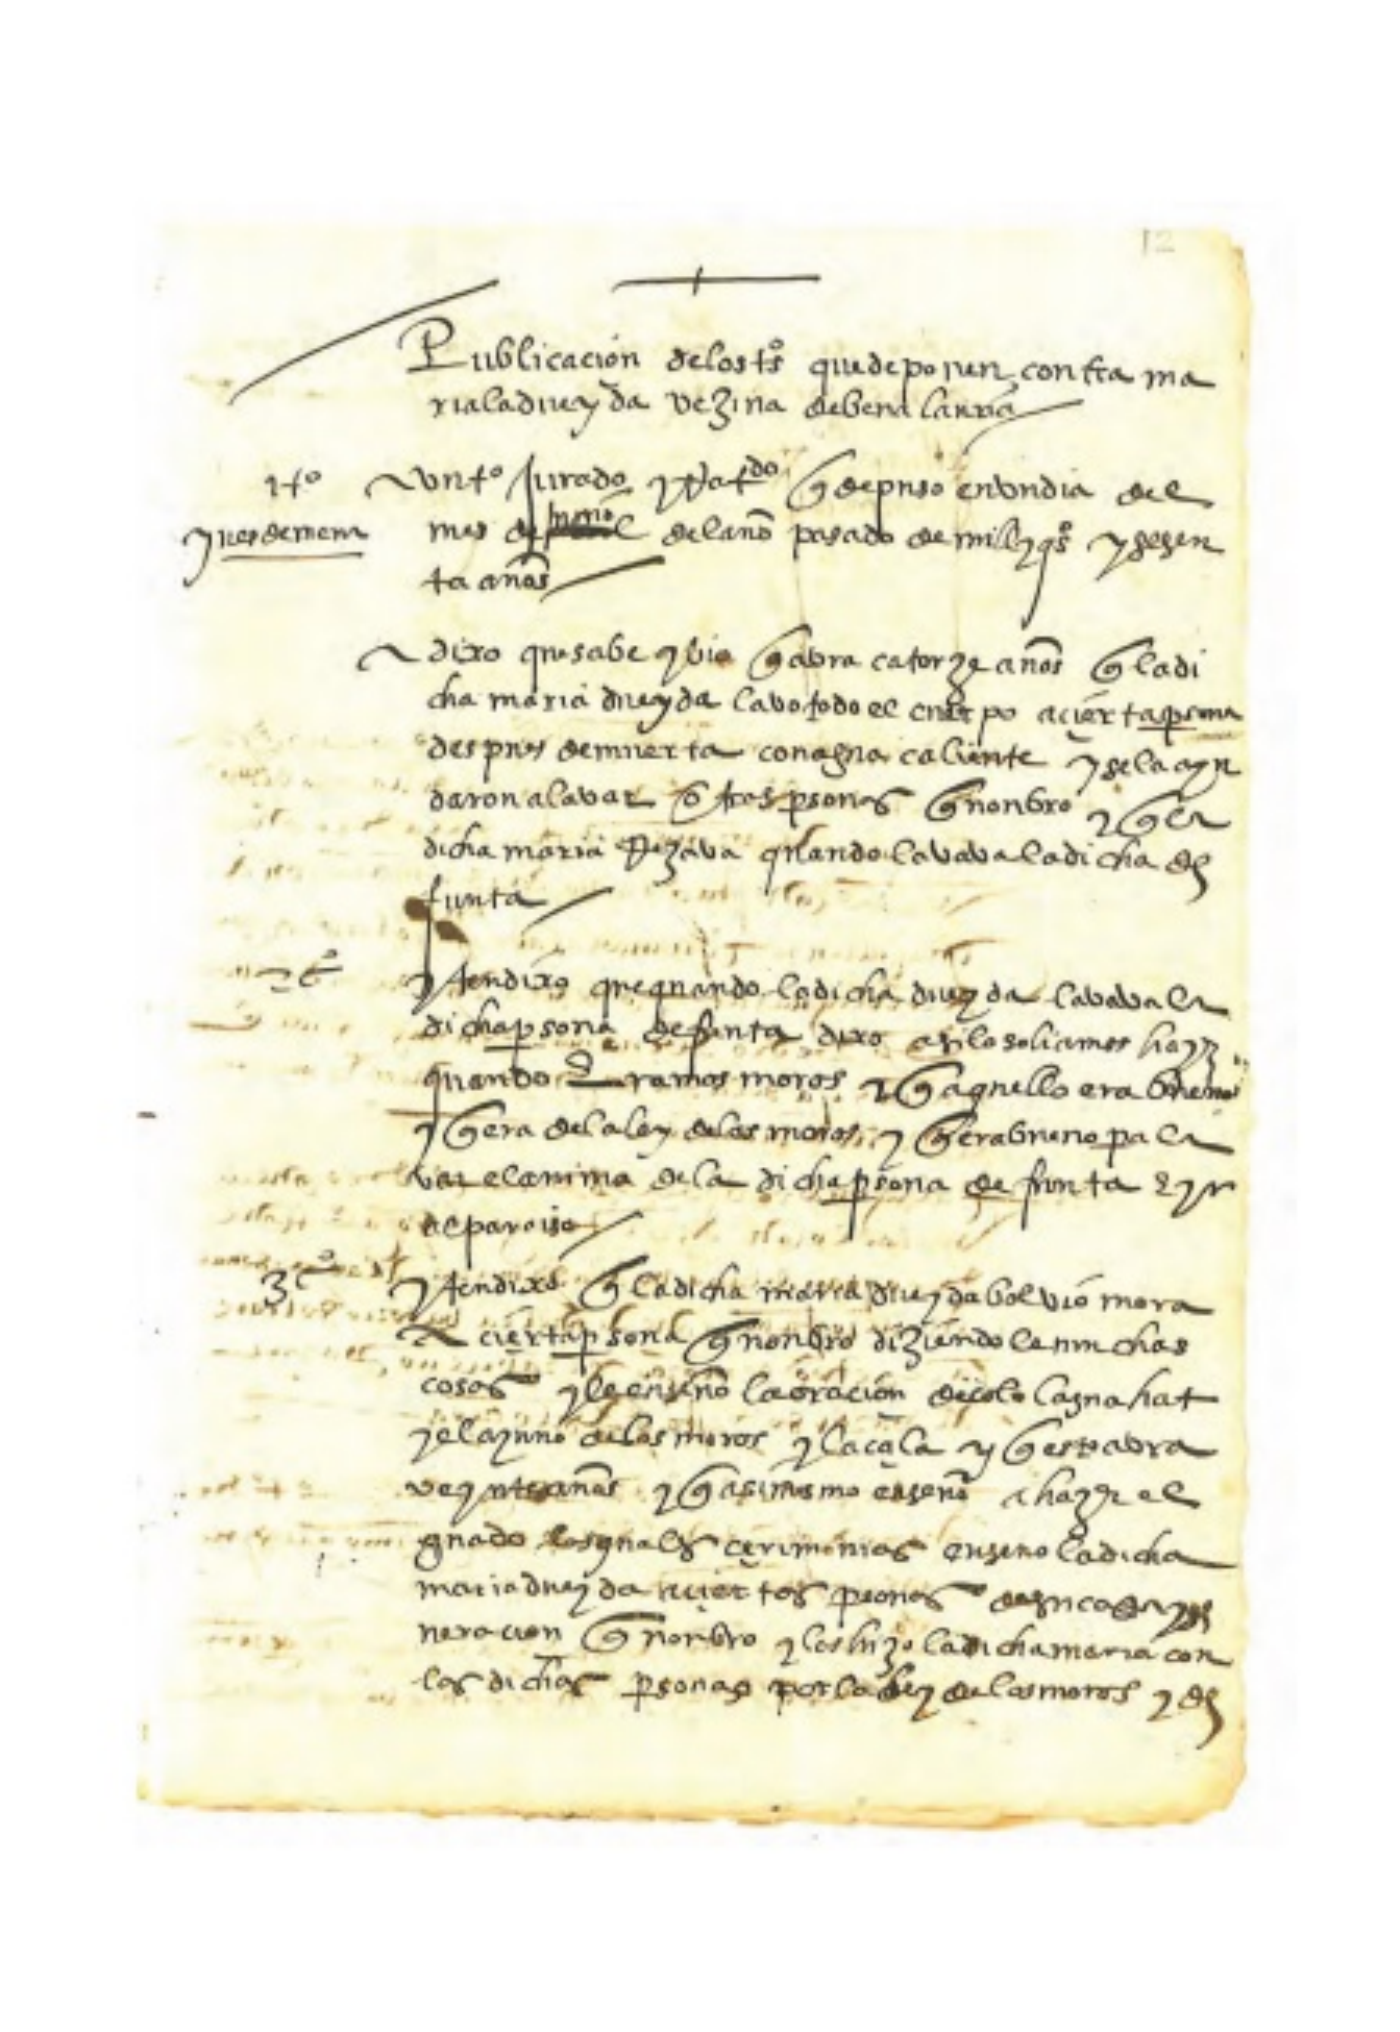 12
Publicaçion delos tos que deponen contra ma
ria la duayda vezina de benalauria
1 to
Un to Jurado y Ratdo q depuso en un dia del
ynes de mena
mes de junio del año pasado de mill y qos y sesen
ta años
dixo que sabe y vio q avra catorze años q la di
cha maria duayda lavo todo el cuerpo a çierta psona
despues de muerta con agua caliente y se la ayu
daron a lavar otras psonas q nonbro y q la
dicha maria Rezava quando lavava la dicha de
funta
2 to
yten dixo que quando la dicha duayda lavava la
dicha psona defunta dixo asi lo soliamos hazer
quando eramos moros y q aquello era bueno
y q era de la ley de los moros y q era bueno pa la
var el anima de la dicha psona defunta e yr
al paraiso
3 o
yten dixo q la dicha maria duayda bolvio mora
a çierta psona q nonbro diziendole muchas
cosas y le enseño la oraçion de colo laguahat
y el ayuno de los moros y la çala y q esto avra
veynte años y q asimismo enseño a hazer el
guado las quales çerimonias enseño la dicha
maria duayda a çiertas psonas de su casa y ge
neraçion q nonbro y las hizo la dicha maria con
las dichas psonas por la ley de los moros y de